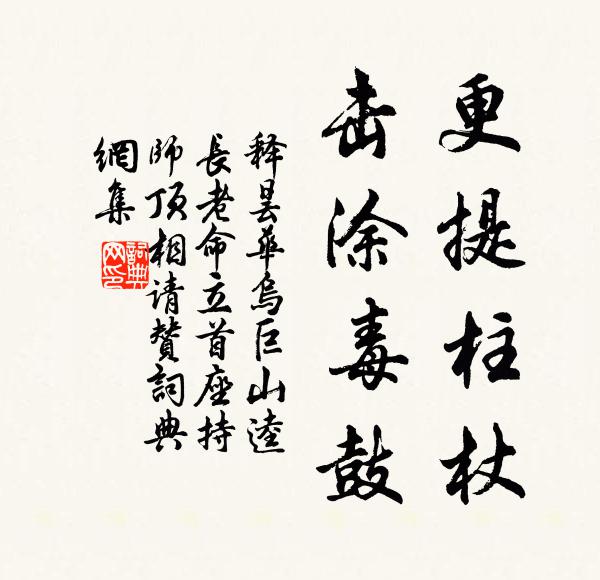 更提柱杖
击涂毒鼓
释昙华乌巨山逵
长老命立首座持
师顶相请赞词典
網集
詞典網印